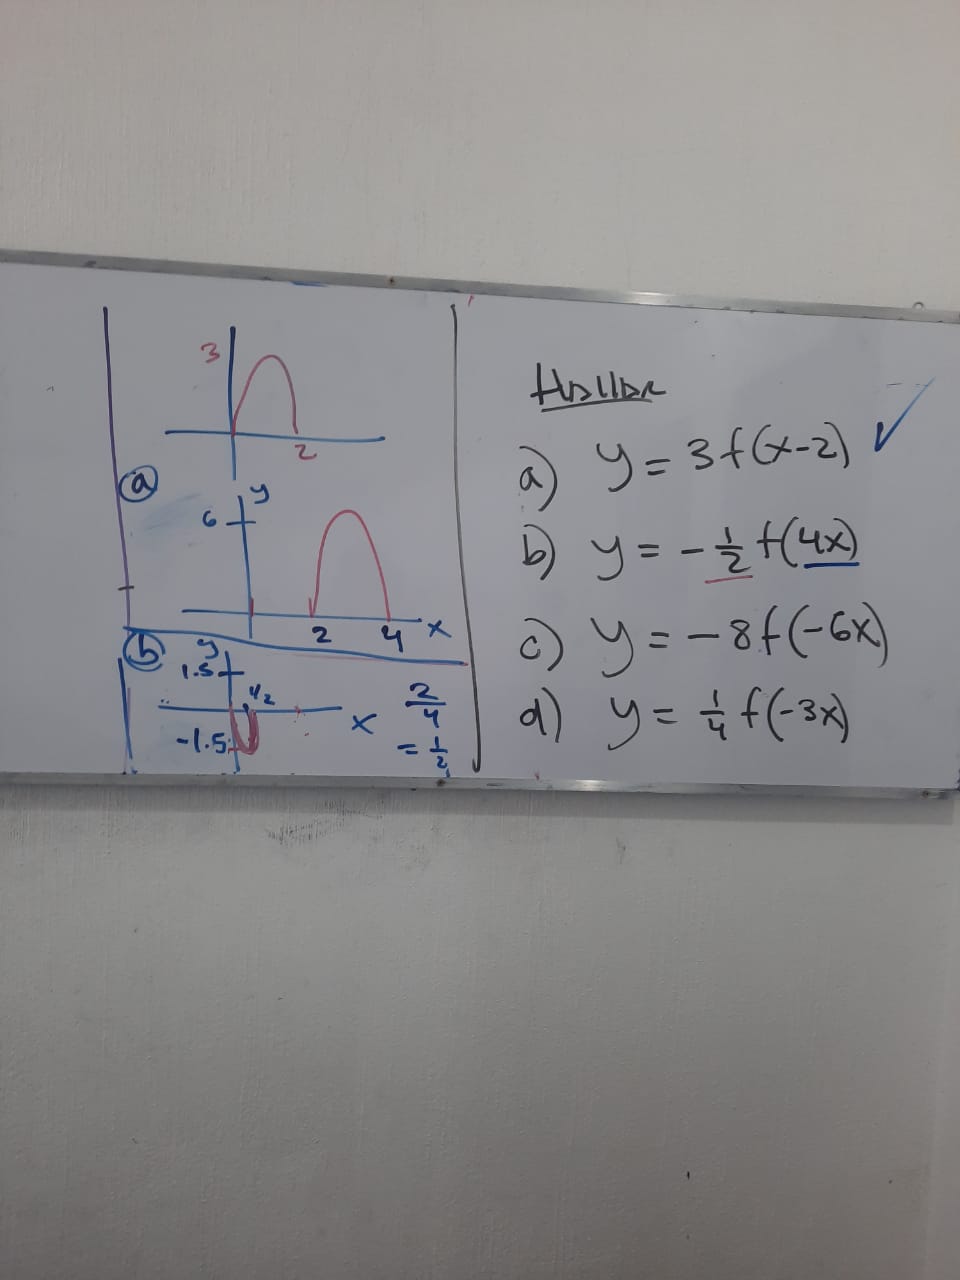 3
2
ⓐ
y
6
2 4 x
ⓑ
y
1.5
1/2
x
-1.5
2/4
= 1/2
Hallar
a) y = 3f(x-2) ✓
b) y = -1/2 f(4x)
c) y = -8f(-6x)
d) y = 1/4 f(-3x)